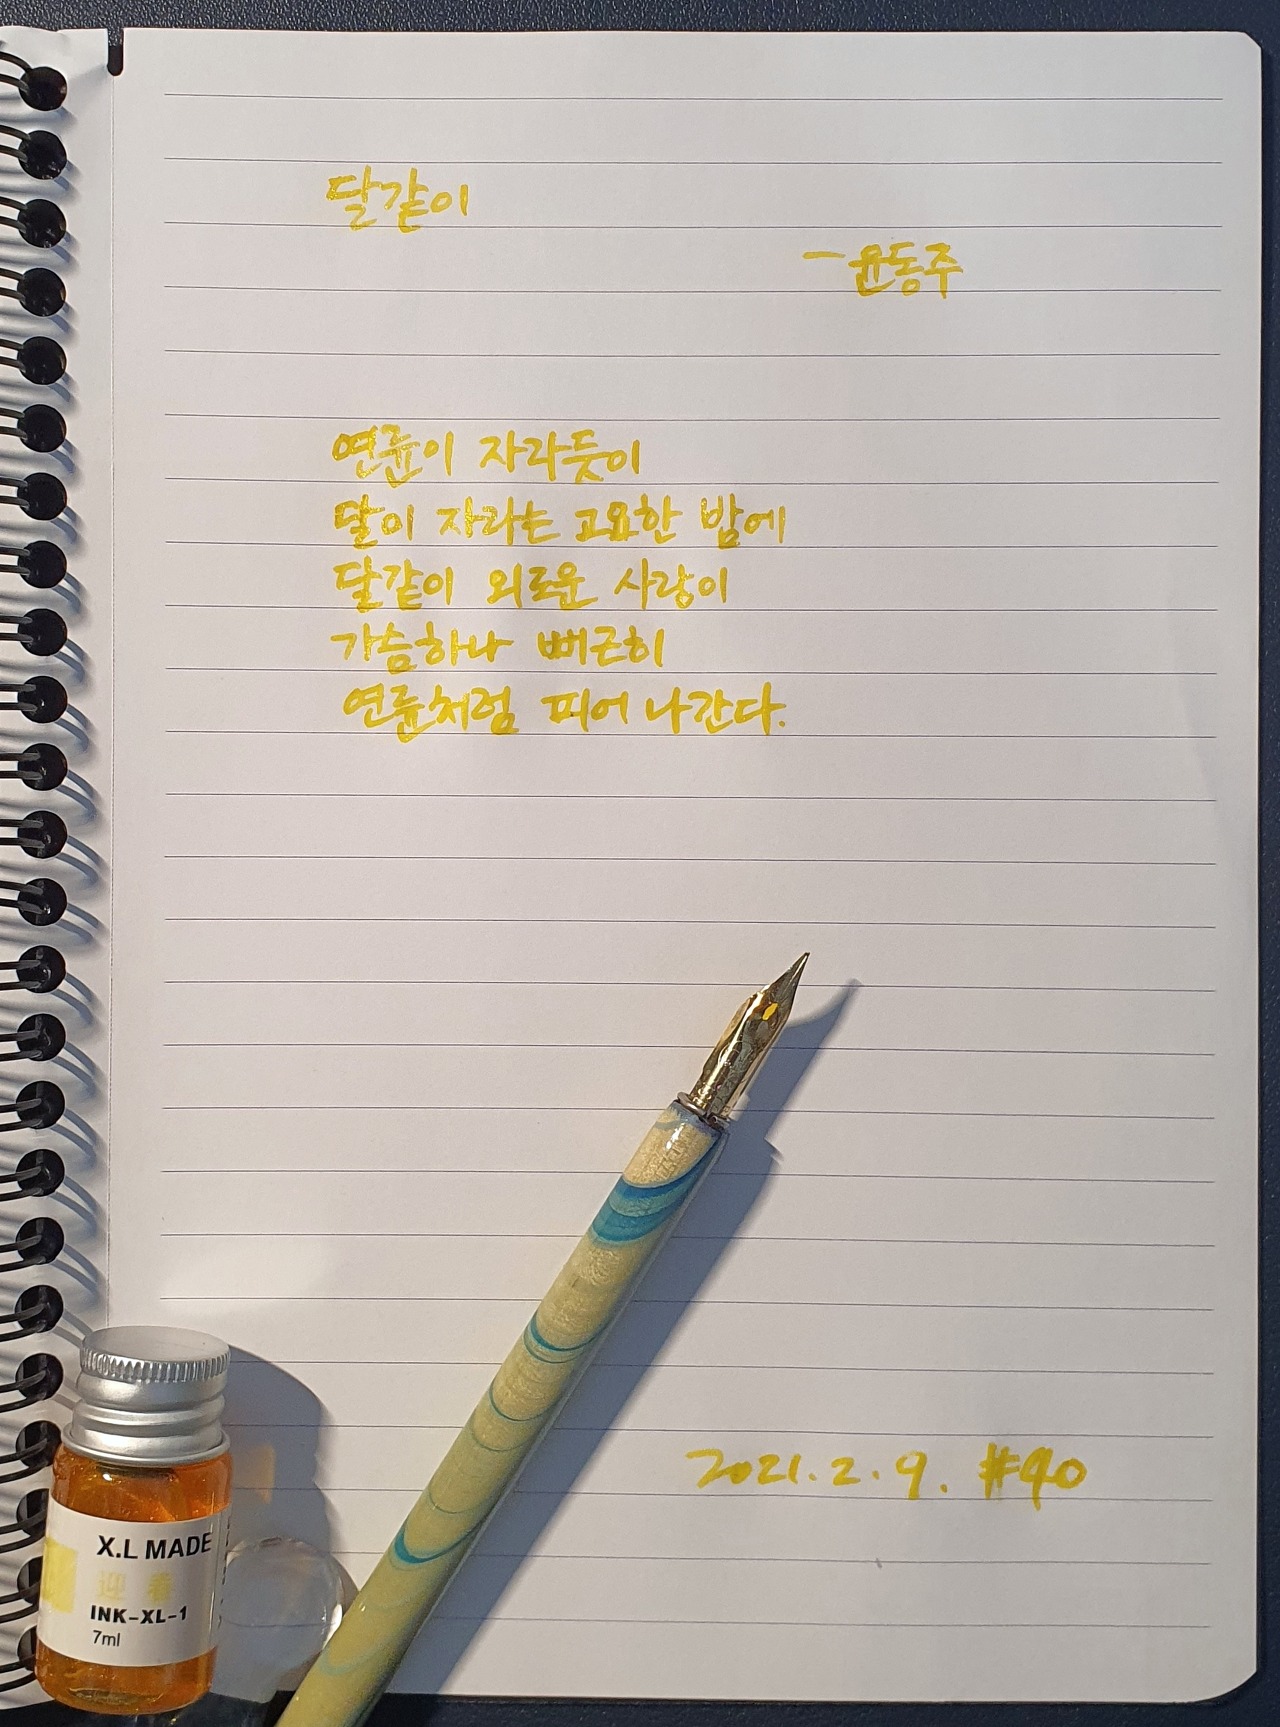 달같이
- 윤동주
연륜이 자라듯이
달이 자라는 고요한 밤에
달같이 외로운 사랑이
가슴하나 뻐근히
연륜처럼 피어 나간다.
2021. 2. 9. #90
X.L MADE
迎春
INK-XL-1
7ml